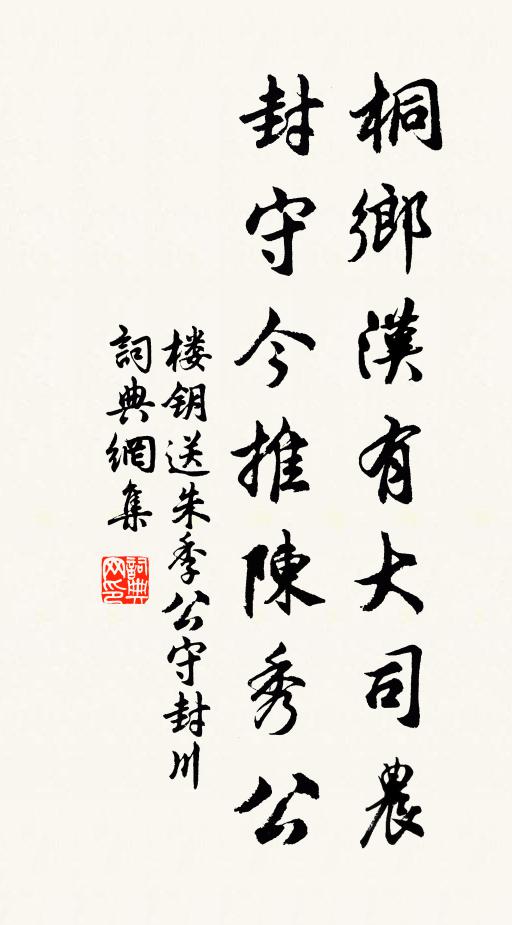 桐鄉漢有大司農
封守今推陳秀公
楼钥送朱季公守封川
詞典網集
詞典网印